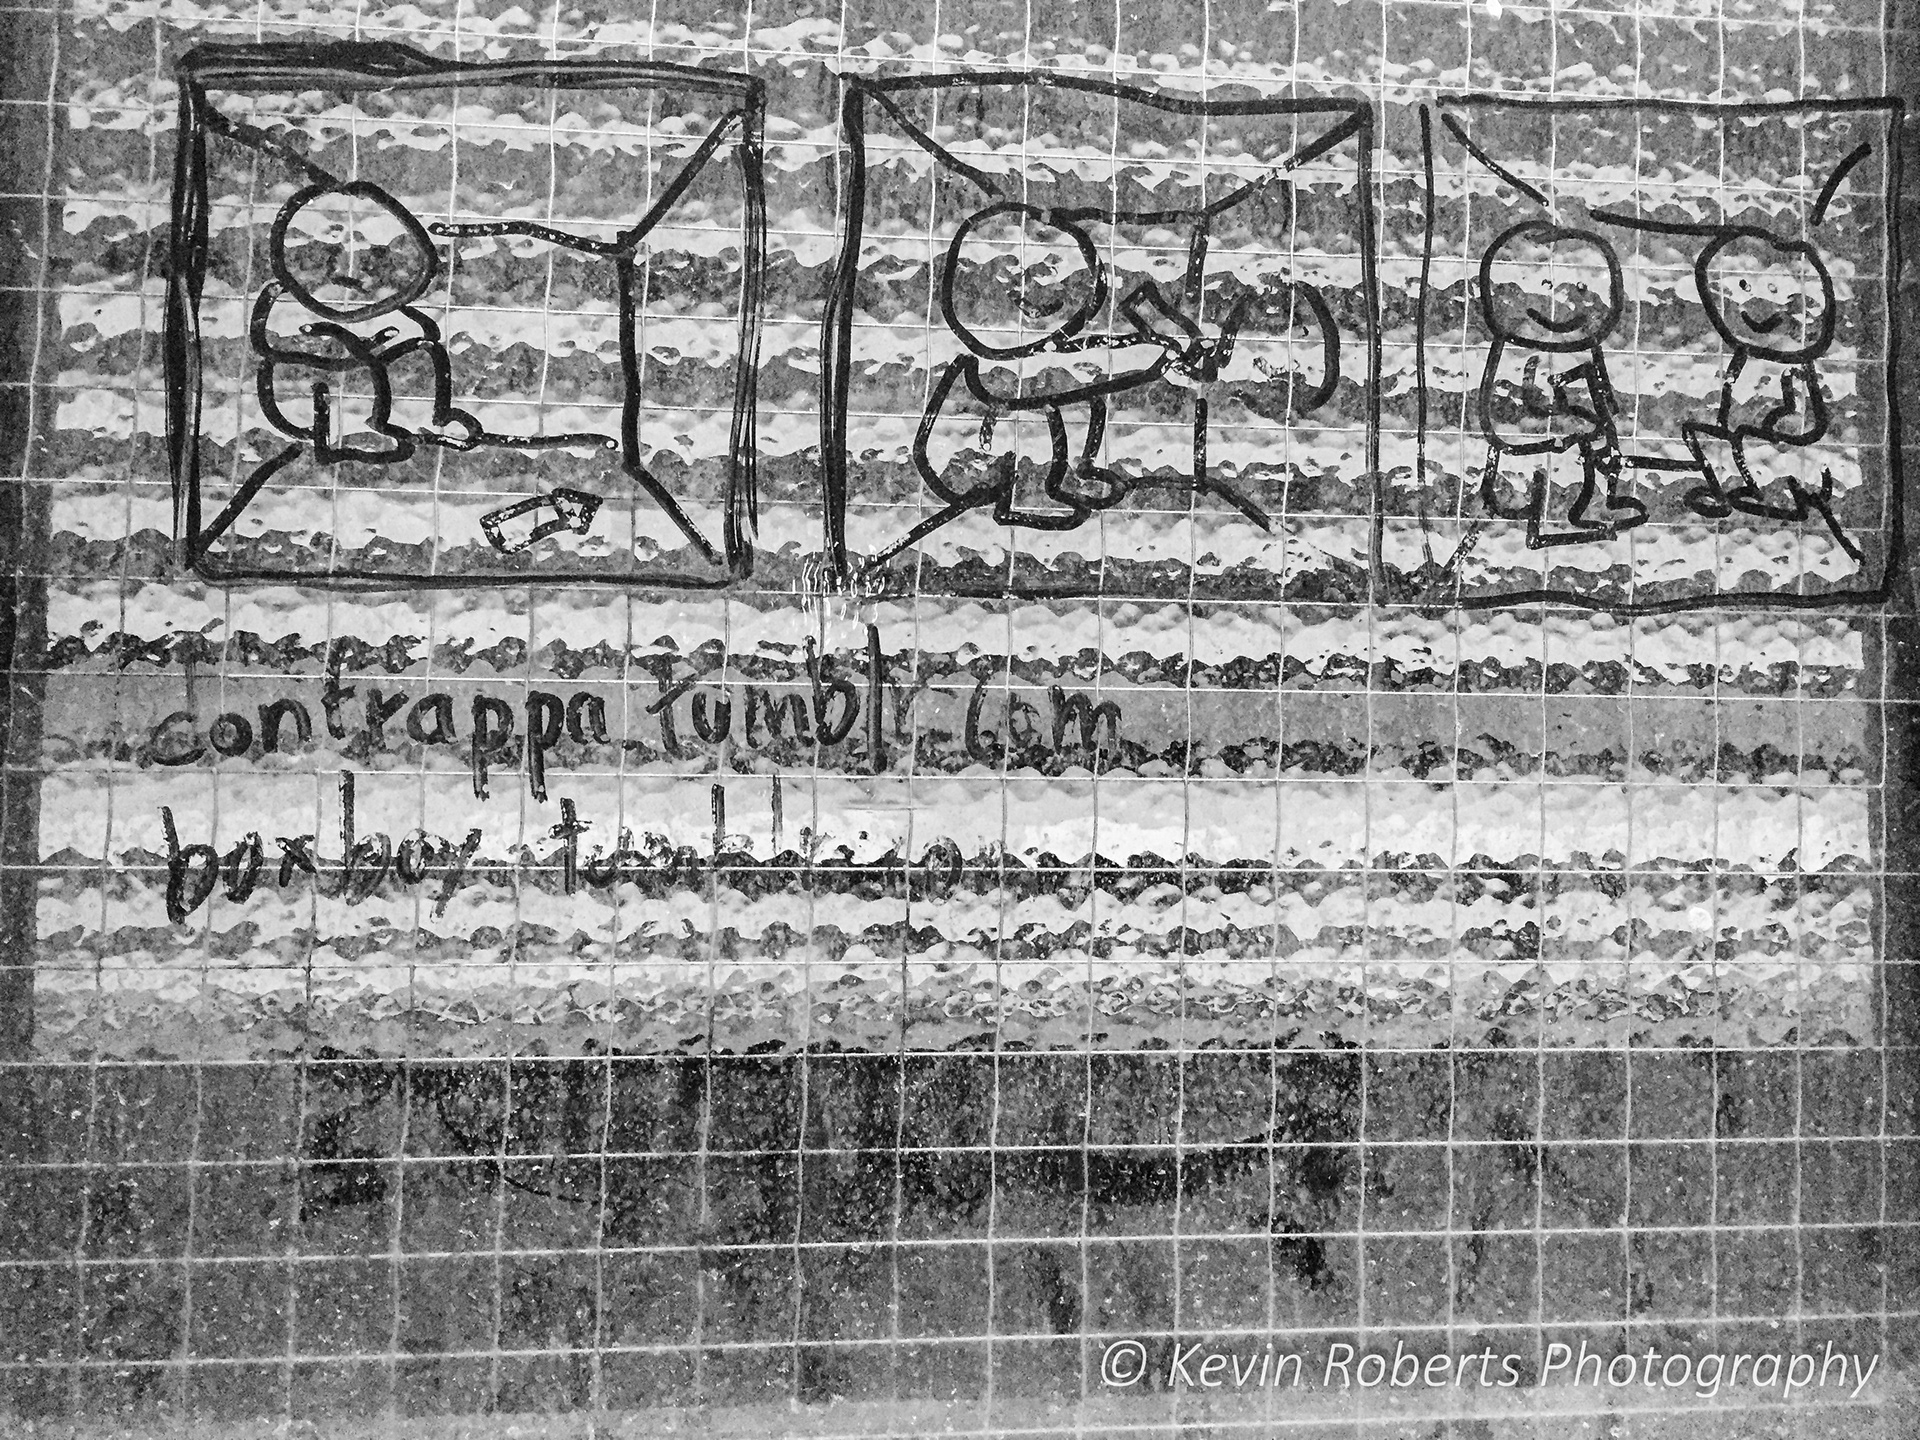 contrappa tumblr com
boxboy
© Kevin Roberts Photography